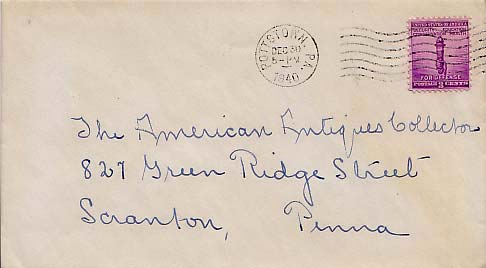 POTTSTOWN, PA.
DEC 30
5-PM
1940
UNITED STATES OF AMERICA
SECURITY EDUCATION
CONSERVATION HEALTH
FOR DEFENSE
POSTAGE 3 CENTS
The American Antiques Collector
827 Green Ridge Street
Scranton, Penna